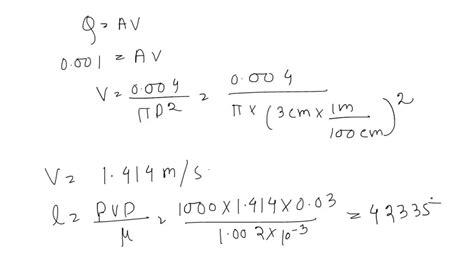 Q = AV
0.001 = AV
V = 0.004 / πD² = 0.004 / π × (3cm × 1m / 100cm)²
V = 1.414 m/s
l = PVD / μ = 1000 × 1.414 × 0.03 / 1.002 × 10⁻³ = 42335